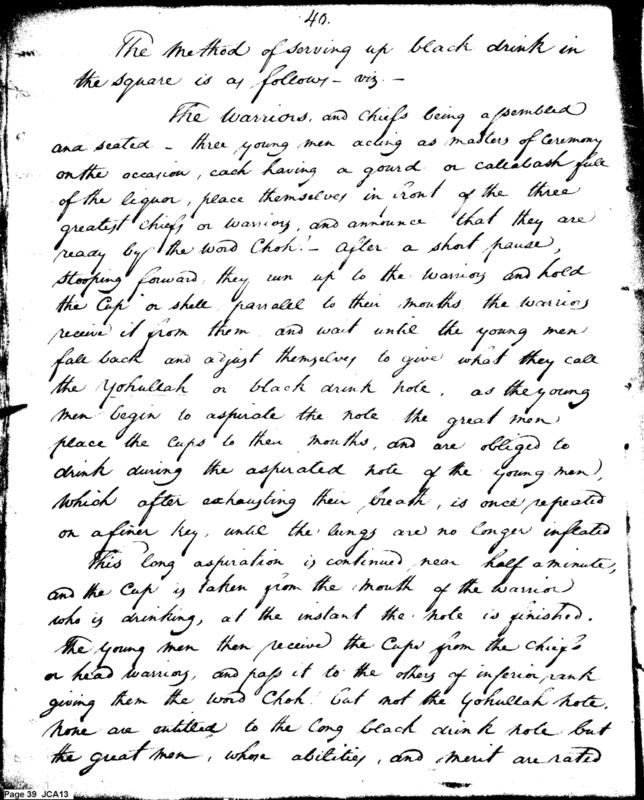 40.
The Method of serving up black drink in
the square is as follows - viz. -
The Warriors, and Chiefs being assembled
and seated - three young men acting as masters of Ceremony
on the occasion, each having a gourd or callabash full
of the liquor, place themselves in front of the three
greatest Chiefs or Warriors, and announce that they are
ready by the Word Choh! - After a short pause,
stooping forward, they run up to the Warriors and hold
the Cup or shell parralel to their mouths. the Warriors
receive it from them and wait until the young men
fall back and adjust themselves to give what they call
the Yohullah or black drink note. as the young
men begin to aspirate the note the great men
place the Cups to their mouths, and are obliged to
drink during the aspirated note of the young men,
which after exhausting their breath, is once repeated
on a finer key, until the lungs are no longer inflated
This long aspiration is continued near half a minute,
and the Cup is taken from the mouth of the Warrior
who is drinking, at the instant the note is finished.
The young men then receive the Cups from the Chiefs
or head Warriors, and pass it to the others of inferior rank
giving them the Word Choh! but not the Yohullah note.
None are entitled to the long black drink note but
the great men, whose abilities, and merit are rated
Page 39 JCA13